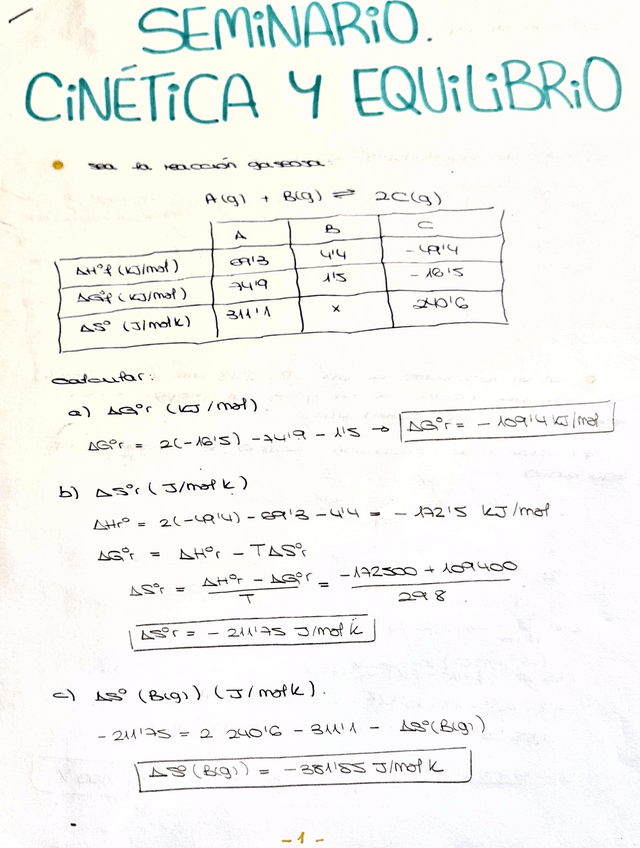 SEMINARIO.
CINÉTICA Y EQUILIBRIO
sea la reacción gaseosa:
A(g) + B(g) ⇌ 2C(g)
A B C
ΔH°f (KJ/mol) 69'3 4'4 -49'4
ΔG°f (KJ/mol) 74'9 1'5 -16'5
ΔS° (J/molk) 311'1 x 240'6
calcular:
a) ΔG°r (KJ/mol).
ΔG°r = 2(-16'5) -74'9 - 1'5 → ΔG°r = - 109'4 KJ/mol
b) ΔS°r (J/molk)
ΔHr° = 2(-49'4) - 69'3 - 4'4 = - 172'5 KJ/mol.
ΔG°r = ΔH°r - TΔS°r
ΔS°r = ΔH°r - ΔG°r / T = -172500 + 109400 / 298.
ΔS°r = - 211'75 J/molk
c) ΔS° (B(g)) (J/molk).
- 211'75 = 2 240'6 - 311'1 - ΔS°(B(g))
ΔS°(B(g)) = -381'85 J/molk
- 1 -